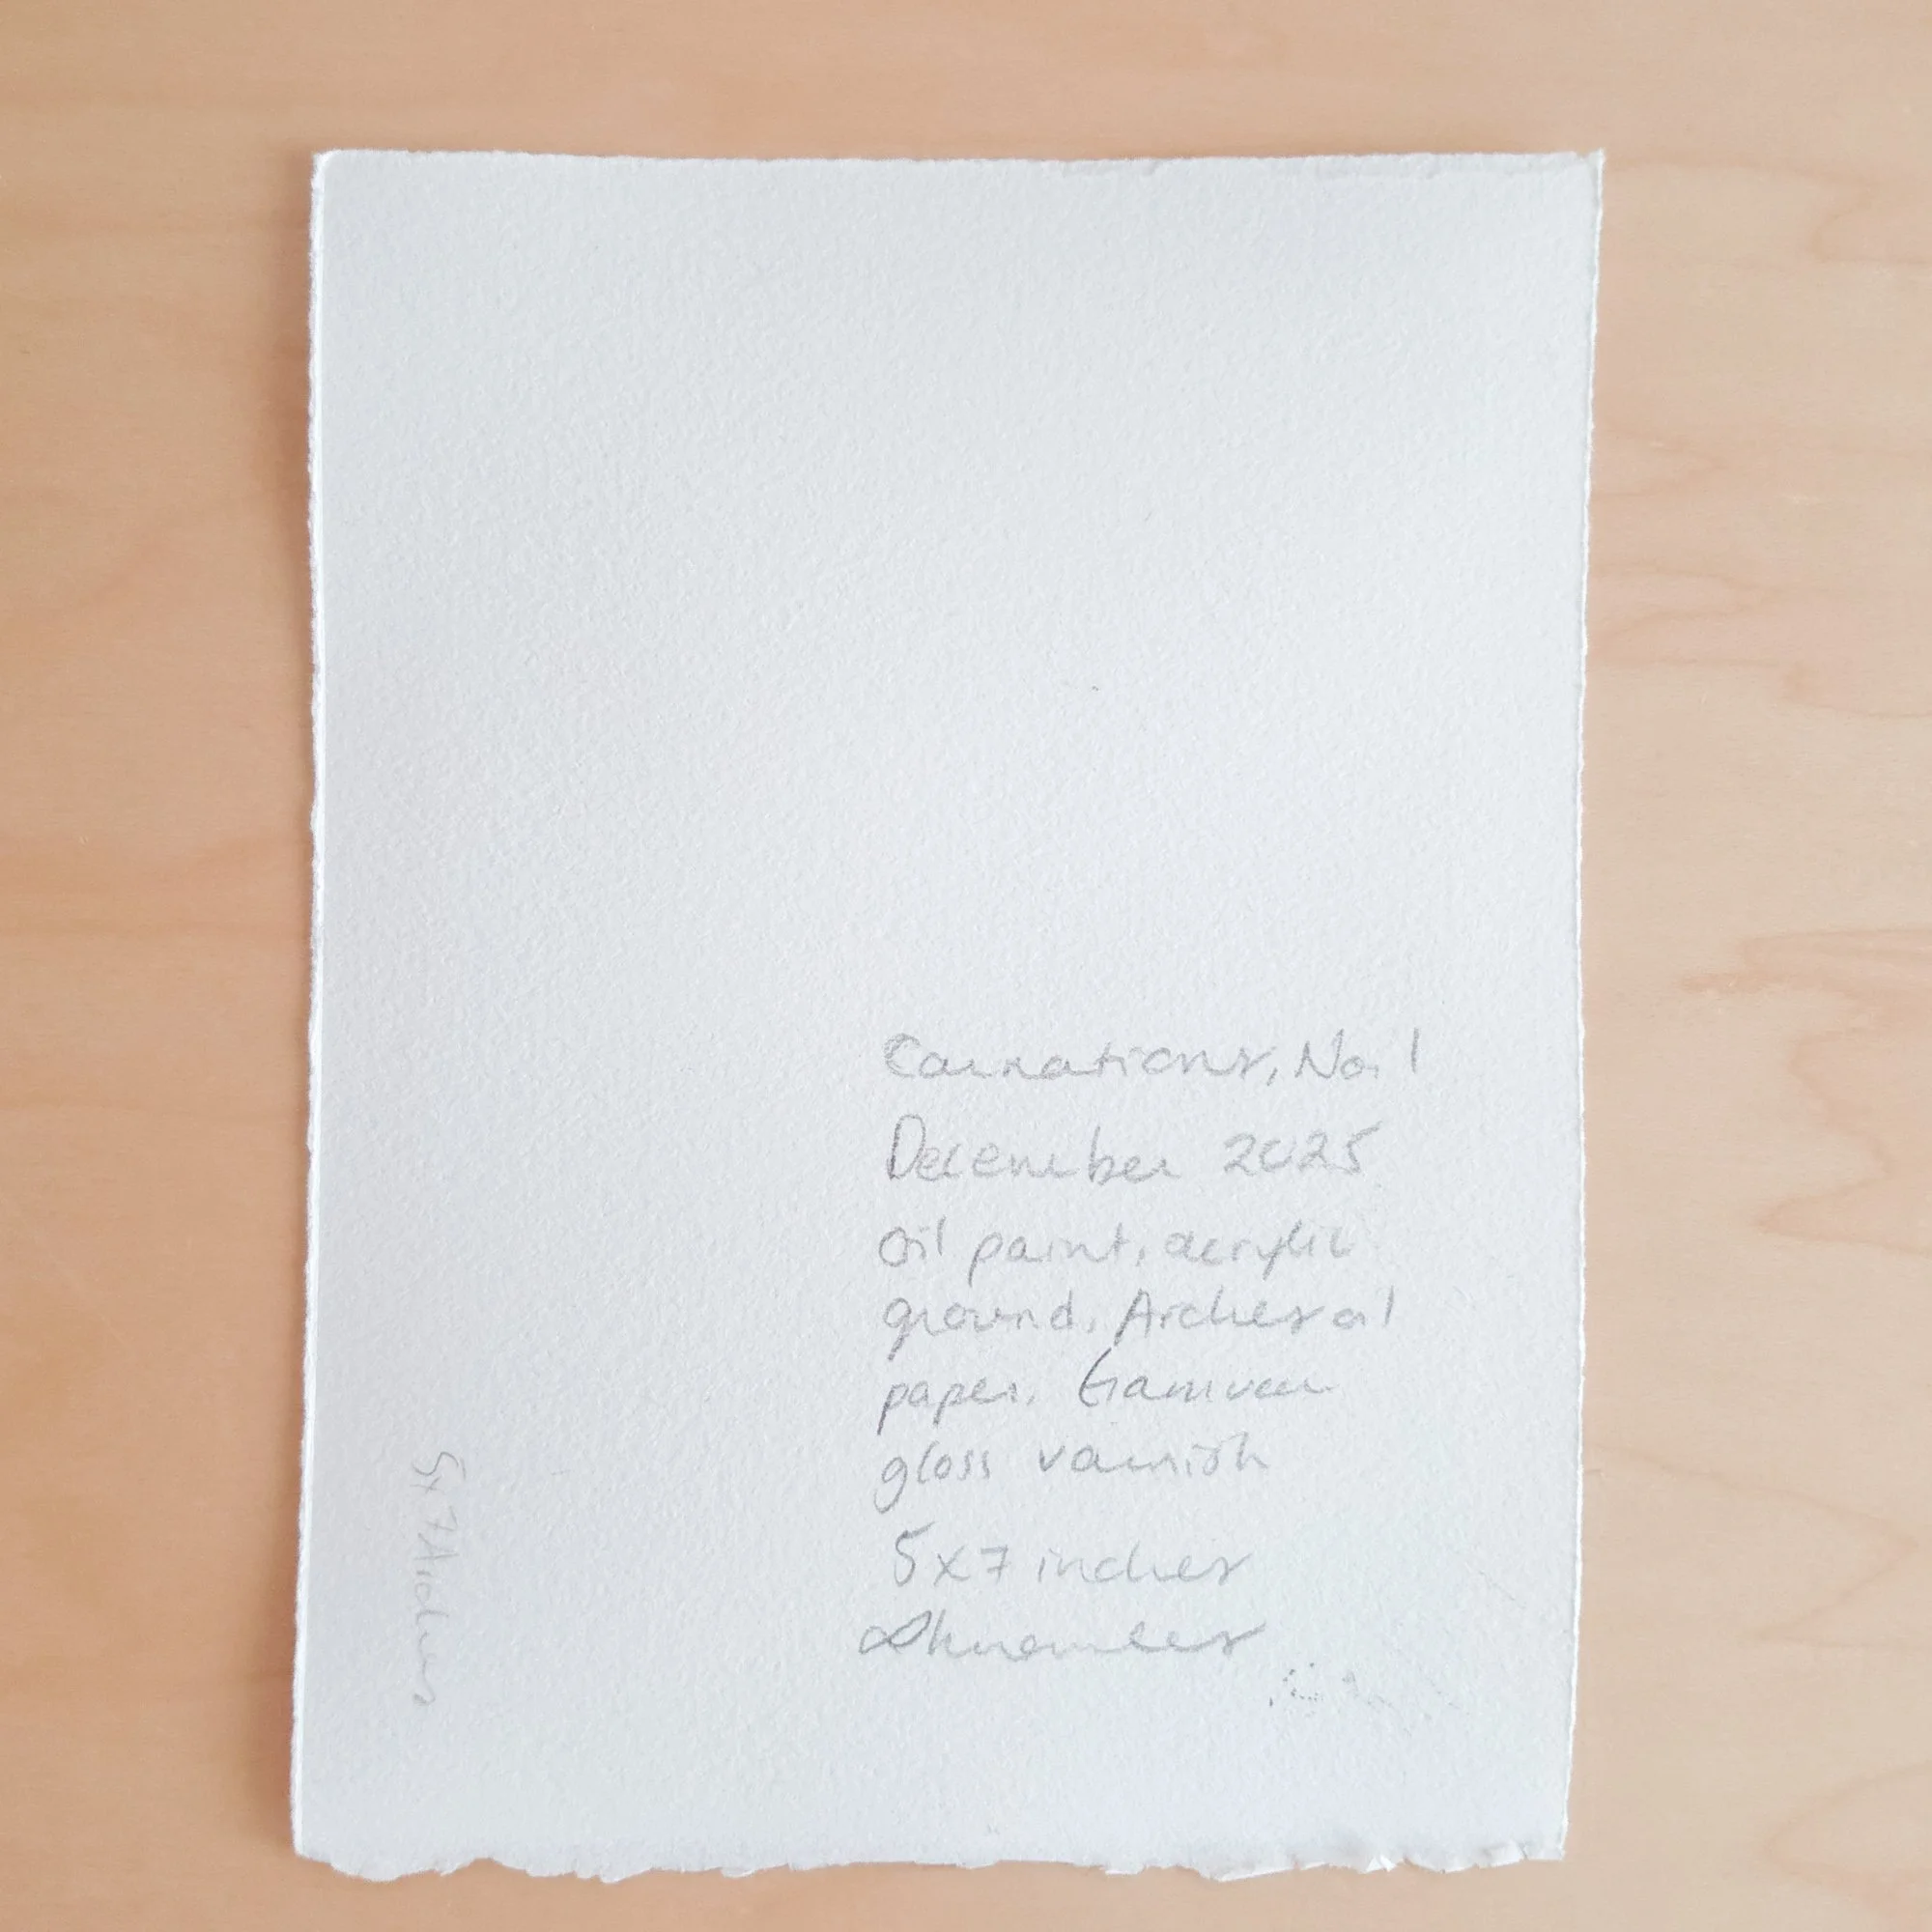 Carnations, No. 1
December 2025
Oil paint, acrylic
ground, Arches oil
paper, Gamvar
gloss varnish
5x7 inches
5x7 Arches